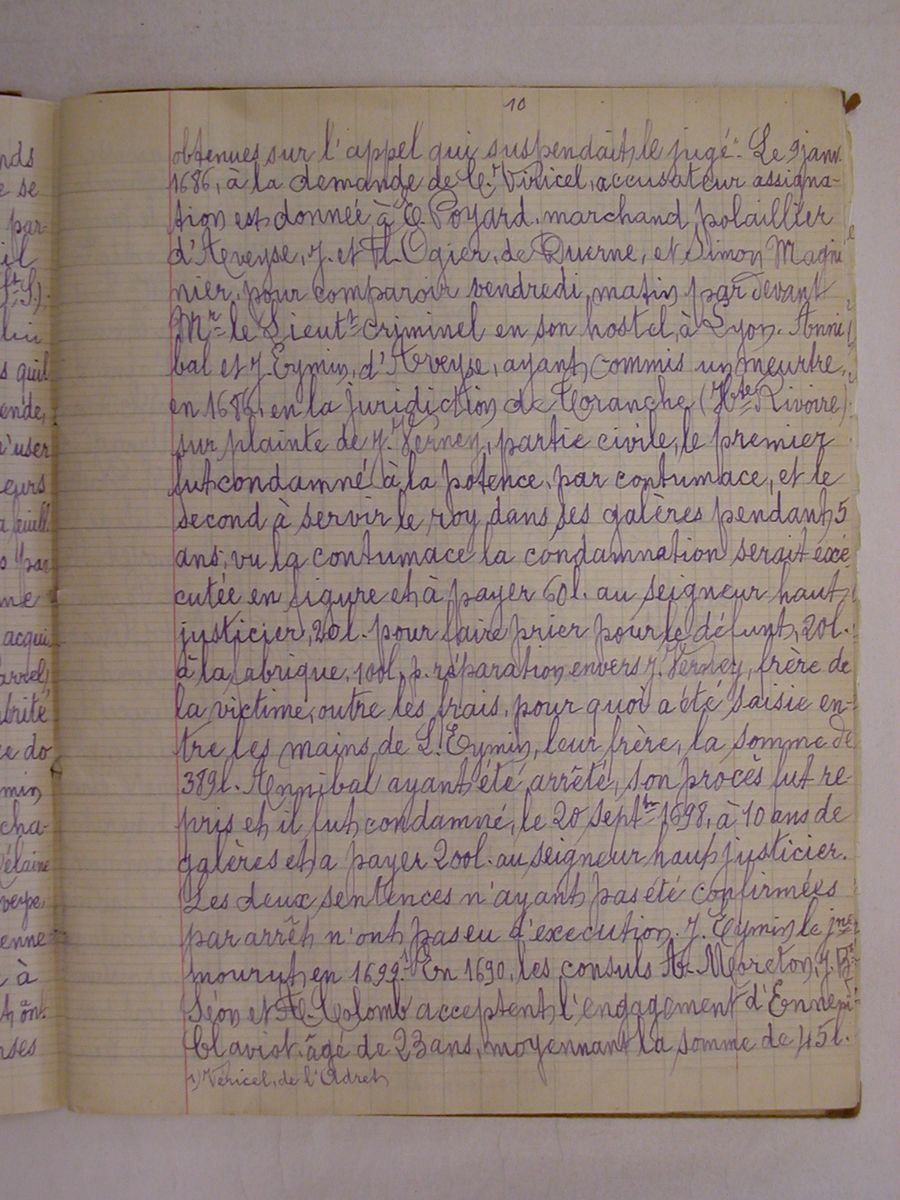 10
obtenues sur l'appel qui suspendait le jugé. Le 9 janv.
1686, à la demande de C. Viricel, accusateur assigna-
tion est donnée à C. Poyard, marchand polaillier
d'Aveyse, J. et Fl. Ogier, de Duerne, et Simon Magni
nier, pour comparoir vendredi, matin par devant
Mr le Lieutt criminel en son hostel, à Lyon. Anni
bal et J. Eymin, d'Aveyse, ayant commis un meurtre,
en 1686, en la juridiction de Coranche (Hte Rivoire)
sur plainte de J. Verney, partie civile, le premier
fut condamné à la potence, par contumace, et le
second à servir le roy dans ses galères pendant 5
ans; vu la contumace la condamnation serait exé
cutée en figure et à payer 60 l. au seigneur haut
justicier, 20 l. pour faire prier pour le défunt, 20 l.
à la fabrique, 100 l. p. réparation envers J. Verney, frère de
la victime, outre les frais, pour quoi a été saisie en-
tre les mains de L. Eymin, leur frère, la somme de
389 l. Annibal ayant été arrêté, son procès fut re-
pris et il fut condamné, le 20 septbre 1698, à 10 ans de
galères et a payer 200 l. au seigneur haut justicier.
Les deux sentences n'ayant pas été confirmées
par arrêt n'ont pas eu d'execution. J. Eymin le jne
mourut en 1699. En 1690, les consuls At. Moreton, J. Bte
Séon et Colomb acceptent l'engagement d'Ennemi
Claviot, âgé de 23 ans, moyennant la somme de 45 l.
1) Véricel, de l'Adret